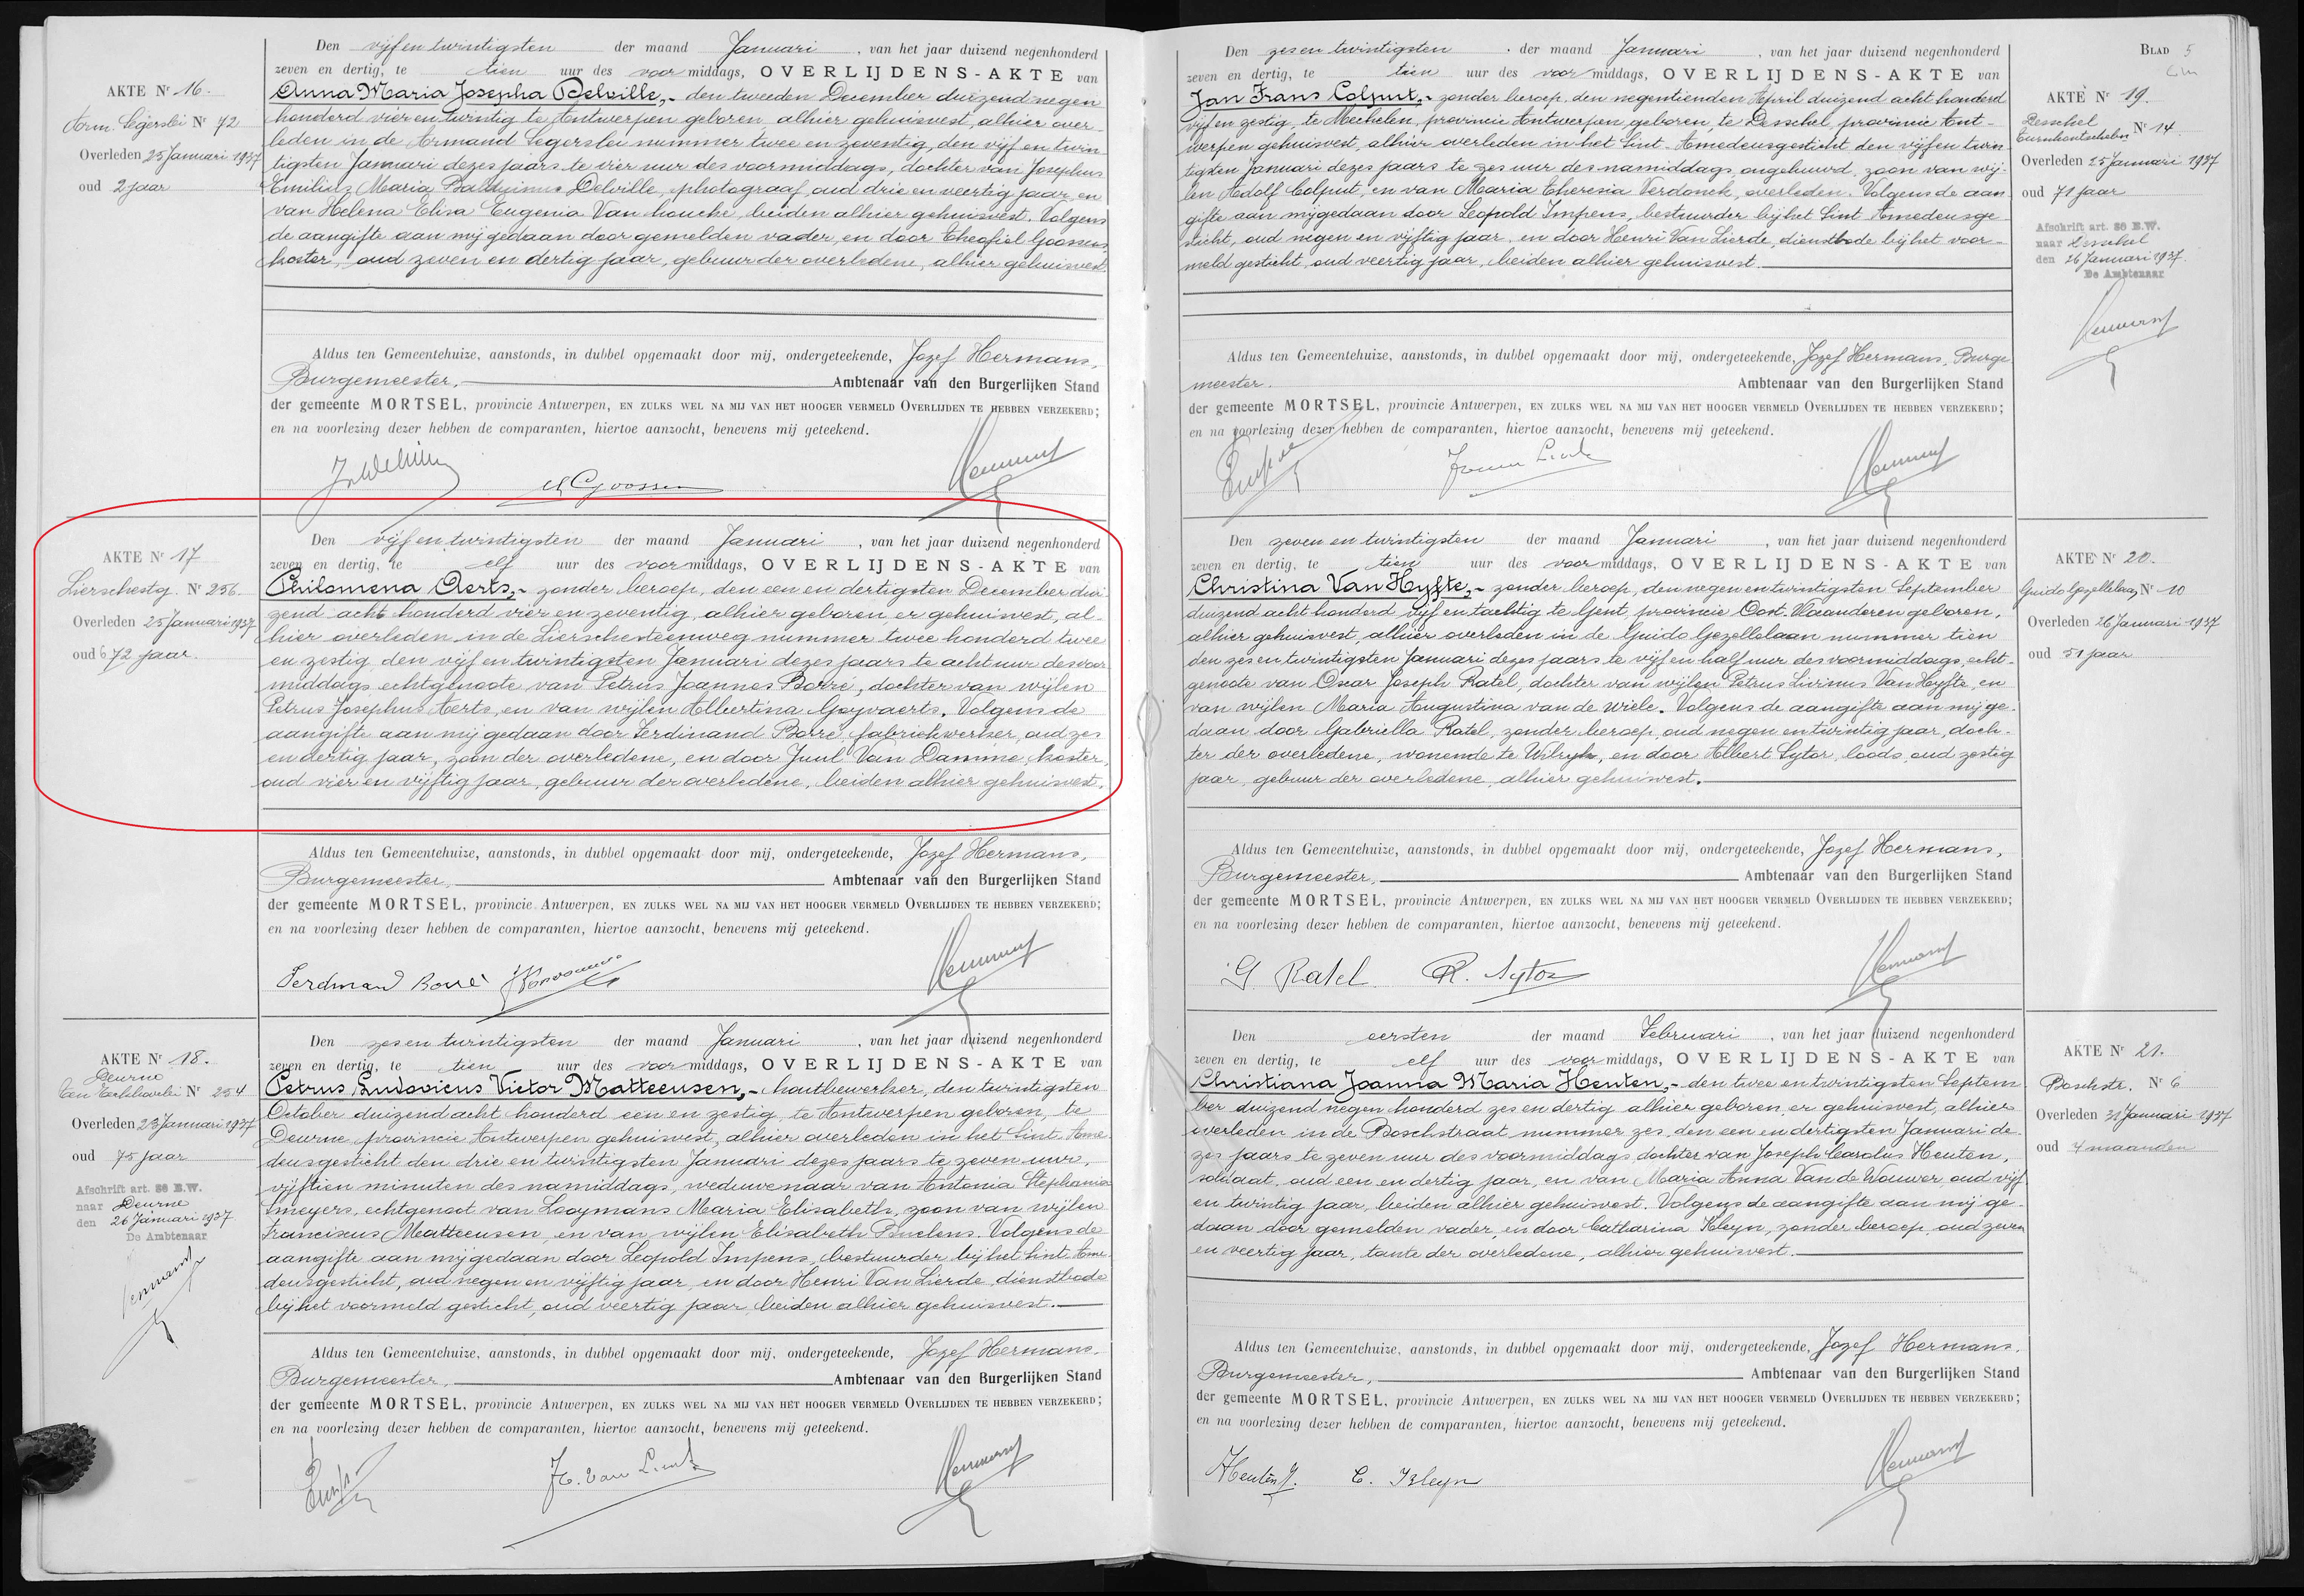 AKTE Nr 16.
Arm. Segerslei Nr 72
Overleden 25 Januari 1937
oud 2 jaar
Den vijf en twintigsten der maand Januari, van het jaar duizend negenhonderd
zeven en dertig, te tien uur des voormiddags, OVERLIJDENS-AKTE van
Anna Maria Josepha Delville,- den tweeden December duizend negen
honderd vier en twintig te Antwerpen geboren, alhier gehuisvest, alhier over-
leden in de Armand Segerslei nummer twee en zeventig, den vijf en twin-
tigsten Januari dezes jaars te vier uur des voormiddags, dochter van Josephus
Emilius Maria Balduinus Delville, photograaf, oud drie en veertig jaar, en
van Helena Elisa Eugenia Van houcke, beiden alhier gehuisvest. Volgens
de aangifte aan mij gedaan door gemelden vader, en door Theofiel Goossens
koster, oud zeven en dertig jaar, gebuur der overledene, alhier gehuisvest.
Aldus ten Gemeentehuize, aanstonds, in dubbel opgemaakt door mij, ondergeteekende, Jozef Hermans,
Burgemeester, Ambtenaar van den Burgerlijken Stand
der gemeente MORTSEL, provincie Antwerpen, EN ZULKS WEL NA MIJ VAN HET HOOGER VERMELD OVERLIJDEN TE HEBBEN VERZEKERD;
en na voorlezing dezer hebben de comparanten, hiertoe aanzocht, benevens mij geteekend.
Th Goossens
AKTE Nr 17
Lierschestg. Nr 256.
Overleden 25 Januari 1937
oud 6 72 jaar.
Den vijf en twintigsten der maand Januari, van het jaar duizend negenhonderd
zeven en dertig, te elf uur des voormiddags, OVERLIJDENS-AKTE van
Philomena Aerts,- zonder beroep, den een en dertigsten December dui
zend acht honderd vier en zeventig, alhier geboren, er gehuisvest, al-
hier overleden in de Lierschesteenweg nummer twee honderd twee
en zestig, den vijf en twintigsten Januari dezes jaars te acht uur des voor
middags echtgenoote van Petrus Joannes Borré, dochter van wijlen
Petrus Josephus Aerts, en van wijlen Albertina Goyvaerts. Volgens de
aangifte aan mij gedaan door Ferdinand Borré, fabriekwerker, oud zes
en dertig jaar, zoon der overledene, en door Juul Van Damme, koster,
oud vier en vijftig jaar, gebuur der overledene, beiden alhier gehuisvest.
Aldus ten Gemeentehuize, aanstonds, in dubbel opgemaakt door mij, ondergeteekende, Jozef Hermans,
Burgemeester, Ambtenaar van den Burgerlijken Stand
der gemeente MORTSEL, provincie Antwerpen, EN ZULKS WEL NA MIJ VAN HET HOOGER VERMELD OVERLIJDEN TE HEBBEN VERZEKERD;
en na voorlezing dezer hebben de comparanten, hiertoe aanzocht, benevens mij geteekend.
Ferdinand Borré
AKTE Nr 18.
Deurne
Nr 254
Overleden 23 Januari 1937
oud 75 jaar
Afschrift art. 80 B.W.
naar Deurne
den 26 Januari 1937
De Ambtenaar
Den zes en twintigsten der maand Januari, van het jaar duizend negenhonderd
zeven en dertig, te tien uur des voormiddags, OVERLIJDENS-AKTE van
Petrus Ludovicus Victor Matteeusen,- houtbewerker, den twintigsten
October duizend acht honderd een en zestig, te Antwerpen geboren, te
Deurne, provincie Antwerpen gehuisvest, alhier overleden in het Sint Ame
deusgesticht den drie en twintigsten Januari dezes jaars te zeven uur,
vijftien minuten des namiddags, weduwenaar van Antonia Stephania
Smeyers, echtgenoot van Looymans Maria Elisabeth, zoon van wijlen
Franciscus Matteeusen, en van wijlen Elisabeth Buelens. Volgens de
aangifte aan mij gedaan door Leopold Impens, bestuurder bij het Sint Ame
deusgesticht, oud negen en vijftig jaar, en door Henri Van Lierde, dienstbode
bij het voormeld gesticht, oud veertig jaar, beiden alhier gehuisvest.
Aldus ten Gemeentehuize, aanstonds, in dubbel opgemaakt door mij, ondergeteekende, Jozef Hermans,
Burgemeester, Ambtenaar van den Burgerlijken Stand
der gemeente MORTSEL, provincie Antwerpen, EN ZULKS WEL NA MIJ VAN HET HOOGER VERMELD OVERLIJDEN TE HEBBEN VERZEKERD;
en na voorlezing dezer hebben de comparanten, hiertoe aanzocht, benevens mij geteekend.
H. Van Lierde
BLAD 5
AKTE Nr 19.
Desschel
Turnhoutschebn Nr 14
Overleden 25 Januari 1937
oud 71 jaar
Afschrift art. 80 B.W.
naar Desschel
den 26 Januari 1937.
De Ambtenaar
Den zes en twintigsten der maand Januari, van het jaar duizend negenhonderd
zeven en dertig, te tien uur des voormiddags, OVERLIJDENS-AKTE van
Jan Frans Colpuit,- zonder beroep, den negentienden April duizend acht honderd
vijf en zestig, te Mechelen, provincie Antwerpen, geboren, te Desschel, provincie Ant-
werpen gehuisvest, alhier overleden in het Sint-Amedeusgesticht den vijf en twin
tigsten Januari dezes jaars te zes uur des namiddags, ongehuwd, zoon van wij-
len Adolf Colpuit, en van Maria Theresia Verdonck, overleden. Volgens de aan
gifte aan mij gedaan door Leopold Impens, bestuurder bij het Sint Amedeusge
sticht, oud negen en vijftig jaar, en door Henri Van Lierde, dienstbode bij het voor-
meld gesticht, oud veertig jaar, beiden alhier gehuisvest.
Aldus ten Gemeentehuize, aanstonds, in dubbel opgemaakt door mij, ondergeteekende, Jozef Hermans, Burge
meester. Ambtenaar van den Burgerlijken Stand
der gemeente MORTSEL, provincie Antwerpen, EN ZULKS WEL NA MIJ VAN HET HOOGER VERMELD OVERLIJDEN TE HEBBEN VERZEKERD;
en na voorlezing dezer hebben de comparanten, hiertoe aanzocht, benevens mij geteekend.
AKTE Nr 20.
Guido Gezellelaan Nr 10
Overleden 26 Januari 1937
oud 51 jaar
Den zeven en twintigsten der maand Januari, van het jaar duizend negenhonderd
zeven en dertig, te tien uur des voormiddags, OVERLIJDENS-AKTE van
Christina Van Hyfte,- zonder beroep, den negen en twintigsten September
duizend acht honderd vijf en tachtig te Gent, provincie Oost-Vlaanderen geboren,
alhier gehuisvest, alhier overleden in de Guido Gezellelaan nummer tien
den zes en twintigsten Januari dezes jaars te vijf en half uur des voormiddags, echt-
genoote van Oscar Joseph Ratel, dochter van wijlen Petrus Livinus Van Hyfte, en
van wijlen Maria Augustina van de Wiele. Volgens de aangifte aan mij ge-
daan door Gabriella Ratel, zonder beroep, oud negen en twintig jaar, doch-
ter der overledene, wonende te Wilryk, en door Albert Sytor, loods, oud zestig
jaar, gebuur der overledene, alhier gehuisvest.
Aldus ten Gemeentehuize, aanstonds, in dubbel opgemaakt door mij, ondergeteekende, Jozef Hermans,
Burgemeester, Ambtenaar van den Burgerlijken Stand
der gemeente MORTSEL, provincie Antwerpen, EN ZULKS WEL NA MIJ VAN HET HOOGER VERMELD OVERLIJDEN TE HEBBEN VERZEKERD;
en na voorlezing dezer hebben de comparanten, hiertoe aanzocht, benevens mij geteekend.
G. Ratel. R. Sytor
AKTE Nr 21.
Boschstr. Nr 6
Overleden 31 Januari 1937
oud 4 maanden
Den eersten der maand Februari, van het jaar duizend negenhonderd
zeven en dertig, te elf uur des voormiddags, OVERLIJDENS-AKTE van
Christiana Joanna Maria Heuten,- den twee en twintigsten Septem
ber duizend negen honderd zes en dertig alhier geboren, er gehuisvest, alhier
overleden in de Boschstraat nummer zes, den een en dertigsten Januari de-
zes jaars te zeven uur des voormiddags, dochter van Joseph Carolus Heuten,
soldaat, oud een en dertig jaar, en van Maria Anna Van de Wouwer, oud vijf
en twintig jaar, beiden alhier gehuisvest. Volgens de aangifte aan mij ge-
daan door gemelden vader, en door Catharina Kleyn, zonder beroep, oud zeven
en veertig jaar, tante der overledene, alhier gehuisvest.
Aldus ten Gemeentehuize, aanstonds, in dubbel opgemaakt door mij, ondergeteekende, Jozef Hermans,
Burgemeester, Ambtenaar van den Burgerlijken Stand
der gemeente MORTSEL, provincie Antwerpen, EN ZULKS WEL NA MIJ VAN HET HOOGER VERMELD OVERLIJDEN TE HEBBEN VERZEKERD;
en na voorlezing dezer hebben de comparanten, hiertoe aanzocht, benevens mij geteekend.
Heuten J. C. Kleyn